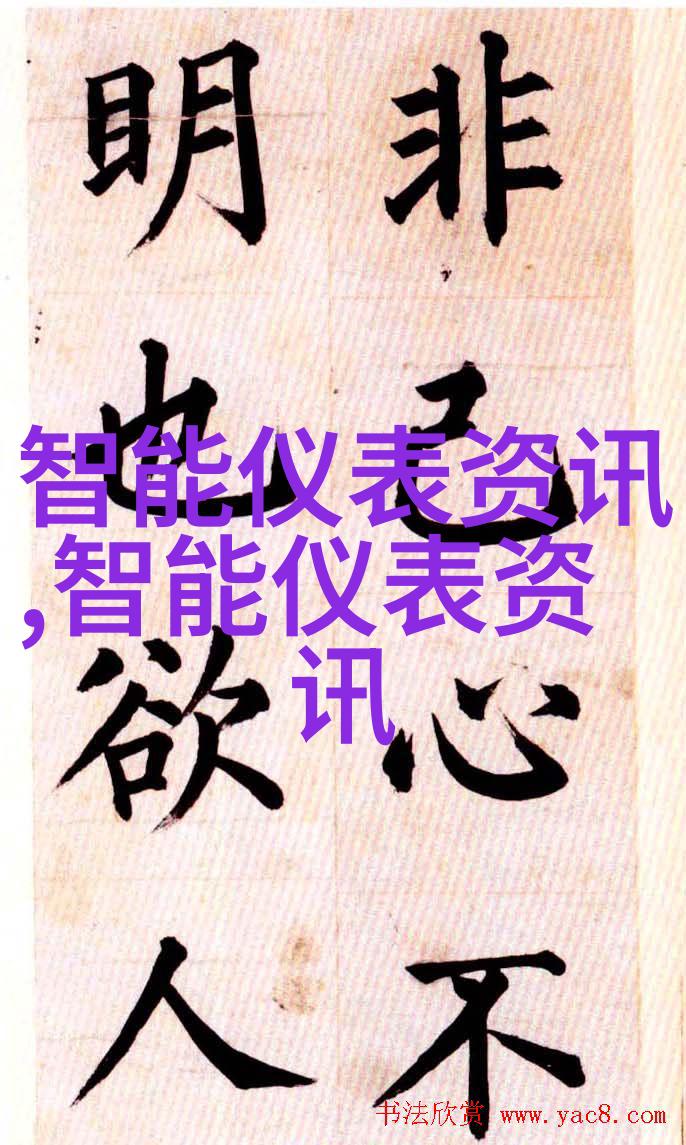 非己心不
明也欲人
智能仪表资讯
,智能仪表资
讯
书法欣赏 www.yac8.com